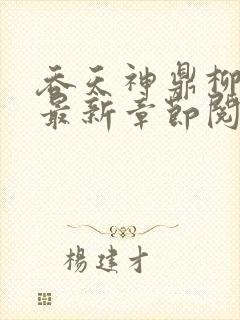 吞天神鼎柳
最新章節閱
楊建才